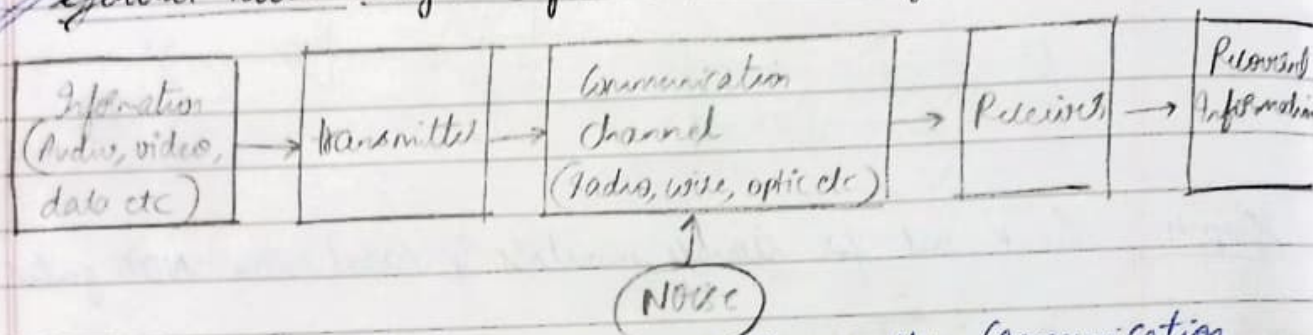 Information
(Audio, video,
data etc)
transmitter
Communication
channel
(radio, wire, optic etc)
Receiver
Recovered
Information
Noise
Communication